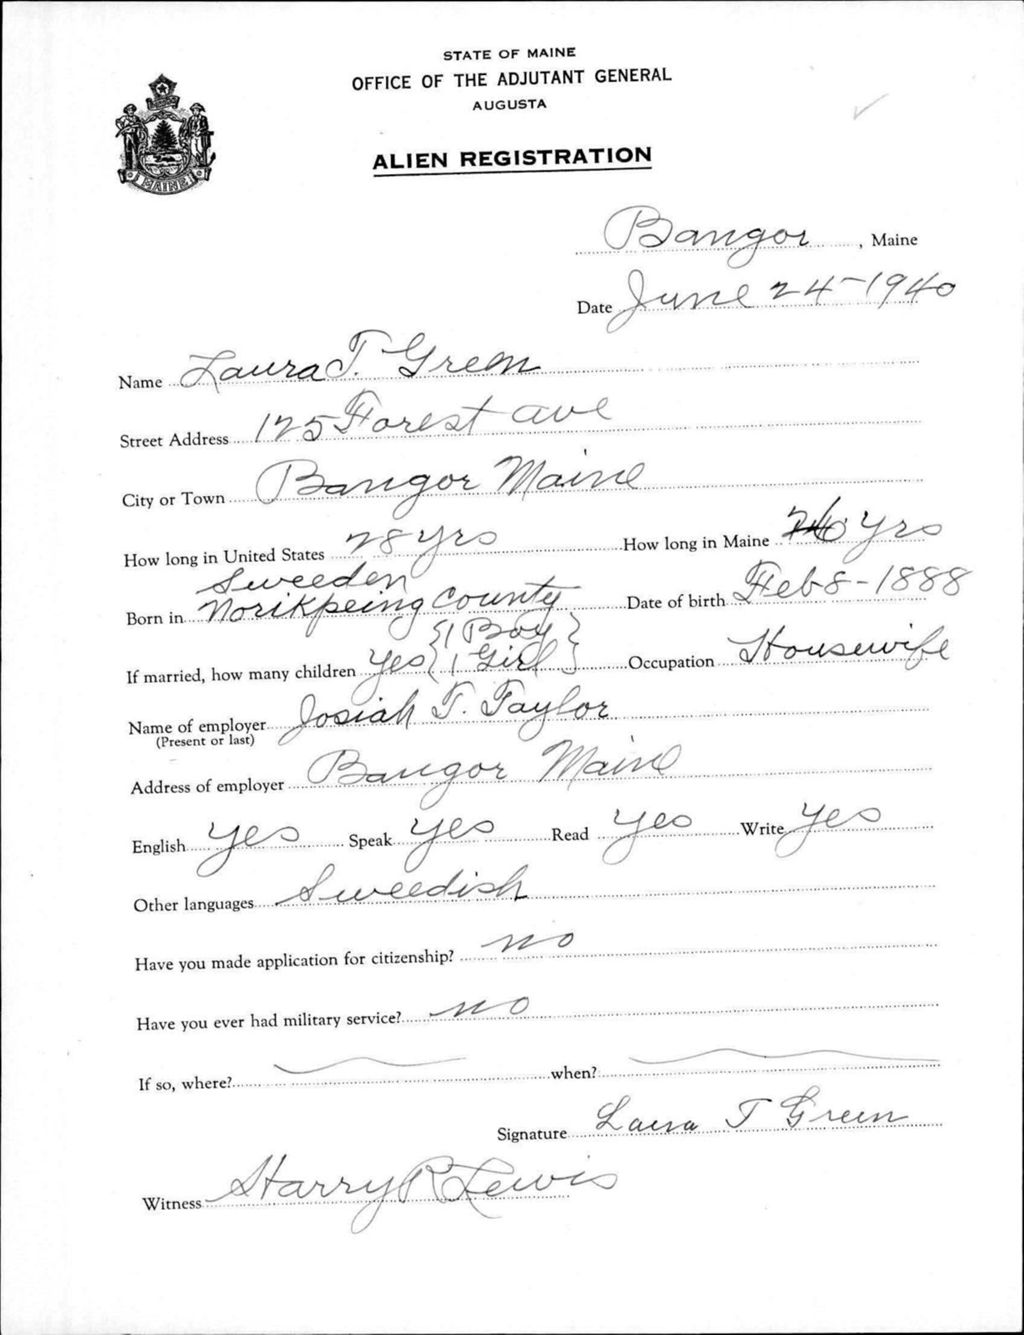 STATE OF MAINE
OFFICE OF THE ADJUTANT GENERAL
AUGUSTA
ALIEN REGISTRATION
MAINE
Bangor, Maine
Date June 24-1940
Name Laura T. Green
Street Address 125 Forest ave
City or Town Bangor Maine
How long in United States 28 yrs How long in Maine 26 yrs
Sweeden
Born in Norikpeing County Date of birth Feb 8-1888
If married, how many children Yes {1 Boy 1 Girl} Occupation Housewife
Name of employer Josiah T. Taylor
(Present or last)
Address of employer Bangor Maine
English Yes Speak Yes Read Yes Write Yes
Other languages Sweedish
Have you made application for citizenship? no
Have you ever had military service? no
If so, where? when?
Signature Laura T Green
Witness Harry R Lewis